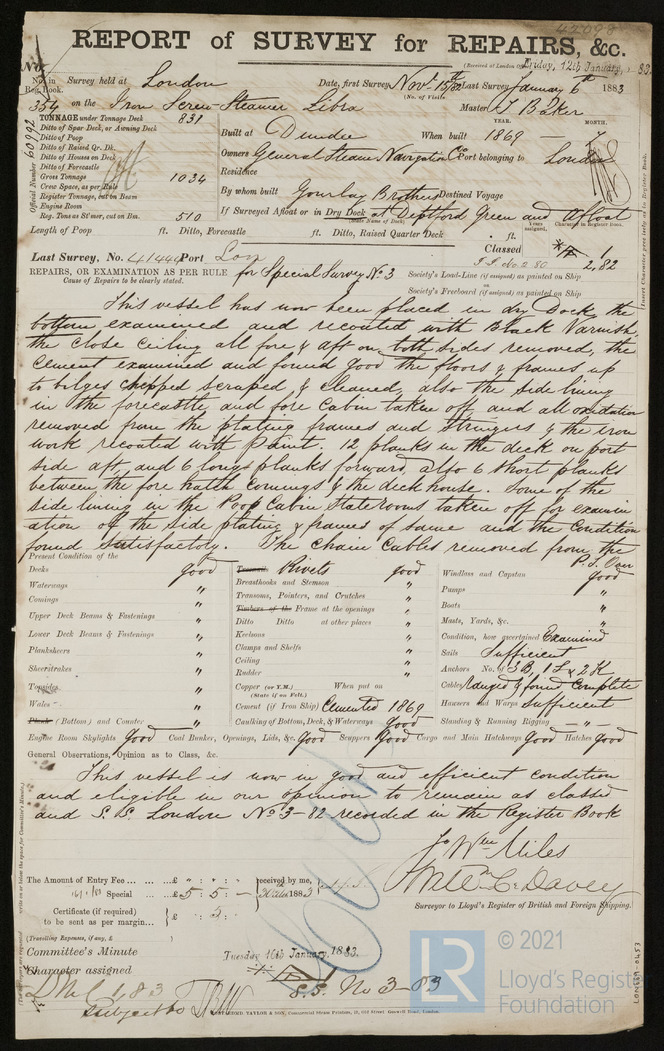 42098
REPORT of SURVEY for REPAIRS, &c.
(Received at London Office Friday, 12th January, 83
No.
No. in Reg. Book. Survey held at London Date, first Survey Nov. 15th 82 Last Survey January 6th 1883
(No. of Visits
354 on the Iron Screw Steamer Libra Master J Baker
Official Number 60992
TONNAGE under Tonnage Deck 831
Ditto of Spar Deck, or Awning Deck
Ditto of Poop
Ditto of Raised Qr. Dk.
Ditto of Houses on Deck
Ditto of Forecastle
Gross Tonnage 1034
Crew Space, as per Rule
Register Tonnage, cut on Beam
Engine Room
Reg. Tons as St'mer, cut on Bm. 510
YEAR. MONTH.
Built at Dundee When built 1869 — 7
Owners General Steam Navigation Co Port belonging to London
Residence
By whom built Gourlay Brothers Destined Voyage
If Surveyed Afloat or in Dry Dock at Deptford Green and Afloat
(State Name of Dock)
Years assigned. Character in Register Book.
Insert Character precisely as in Register Book.
Length of Poop ft. Ditto, Forecastle ft. Ditto, Raised Quarter Deck ft.
Classed 1,82
S.S. No 2 80
Last Survey, No. 41444 Port Lon
REPAIRS, OR EXAMINATION AS PER RULE for Special Survey No 3
Cause of Repairs to be clearly stated.
Society's Load-Line (if assigned) as painted on Ship
Society's Freeboard (if assigned) as painted on Ship
This vessel has now been placed in dry Dock, the
bottom examined and recoated with Black Varnish,
the close ceiling all fore & aft on both sides removed, the
cement examined and found good the floors & frames up
to bilges chopped scraped & cleaned, also the side lining
in the forecastle, and fore Cabin taken off, and all oxidation
removed from the plating frames and Stringers & the iron
work recoated with paint. 12 planks in the deck on port
side aft, and 6 long planks forward, also 6 short planks
between the fore hatch Comings & the deck house. Some of the
side lining in the Poop Cabin State rooms taken off for examin
ation of the side plating & frames of same and the Condition
found satisfactory. The chain cables removed from the
P.T. Over
Present Condition of the
Decks good
Waterways "
Comings "
Upper Deck Beams & Fastenings "
Lower Deck Beams & Fastenings "
Planksheers "
Sheerstrakes "
Topsides "
Wales "
Plank (Bottom) and Counter "
Treenails Rivets good
Breasthooks and Stemson "
Transoms, Pointers, and Crutches "
Timbers of the Frame at the openings "
Ditto Ditto at other places "
Keelsons "
Clamps and Shelfs "
Ceiling "
Rudder "
Copper (or Y.M.) When put on
(State if on Felt.)
Cement (if Iron Ship) Cemented 1869
Caulking of Bottom, Deck, & Waterways good
Windlass and Capstan good
Pumps "
Boats "
Masts, Yards, &c. "
Condition, how ascertained Examined
Sails Sufficient
Anchors No. of 3 B, 1 S & 2 K
Cables Ranged & found Complete
Hawsers and Warps sufficient
Standing & Running Rigging — " —
Engine Room Skylights good Coal Bunker, Openings, Lids, &c. good Scuppers good Cargo and Main Hatchways good Hatches good
General Observations, Opinion as to Class, &c.
This vessel is now in good and efficient condition
and eligible in our opinion to remain as classed
and S.S. London No 3-82 recorded in the Register Book
Jo Wm Miles
The Amount of Entry Fee ... £ : :
Special £ 5 : 5 : — received by me,
1883
Certificate (if required) to be sent as per margin... £ : 5 :
(Travelling Expenses, if any, £ )
Surveyor to Lloyd's Register of British and Foreign Shipping.
Committee's Minute Tuesday 16th January, 1883.
Character assigned
S.S. No 3-83
LMC 1,83
subject to
TAYLOR & SON, Commercial Steam Printers, 19, Old Street, Goswell Road, London.
LR
© 2021
Lloyd's Register
Foundation